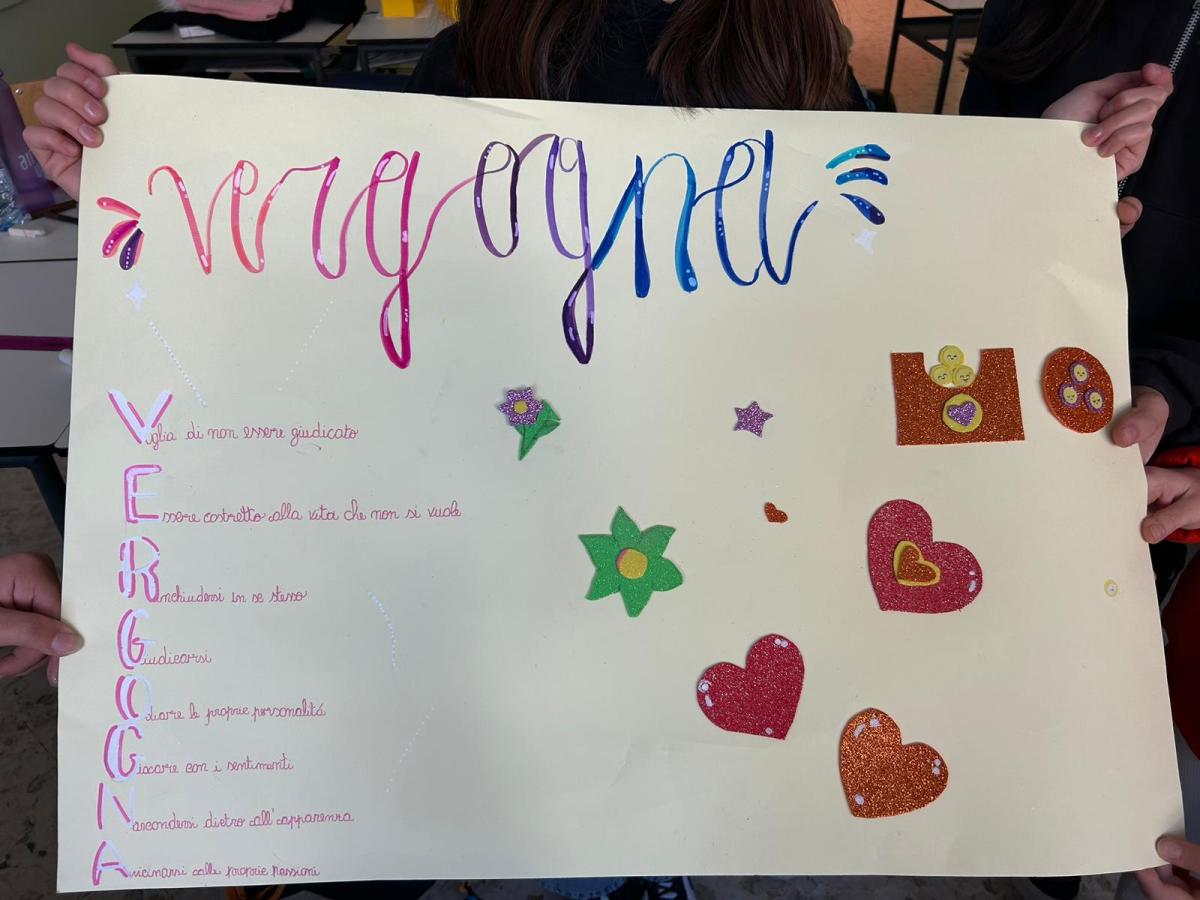 vergogna
Voglia di non essere giudicato
Essere costretto alla vita che non si vuole
Rinchiudersi in se stesso
Giudicarsi
Odiare le proprie personalità
Giocare con i sentimenti
Nascondersi dietro all'apparenza
Avvicinarsi alle proprie passioni